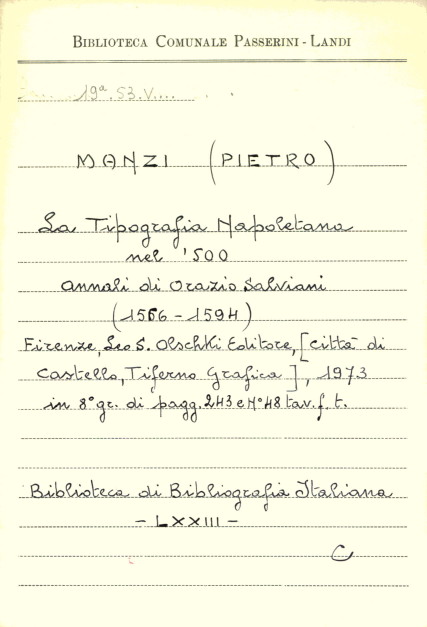 BIBLIOTECA COMUNALE PASSERINI - LANDI
19ª.53.V....
MANZI (PIETRO)
La Tipografia Napoletana
nel '500
annali di Orazio Salviani
(1566 - 1594)
Firenze, Leo S. Olschki Editore, [Città di
Castello, Tiferno Grafica], 1973
in 8° gr. di pagg. 243 e N° 48 tav. f. t.
Biblioteca di Bibliografia Italiana
- LXXIII -
C